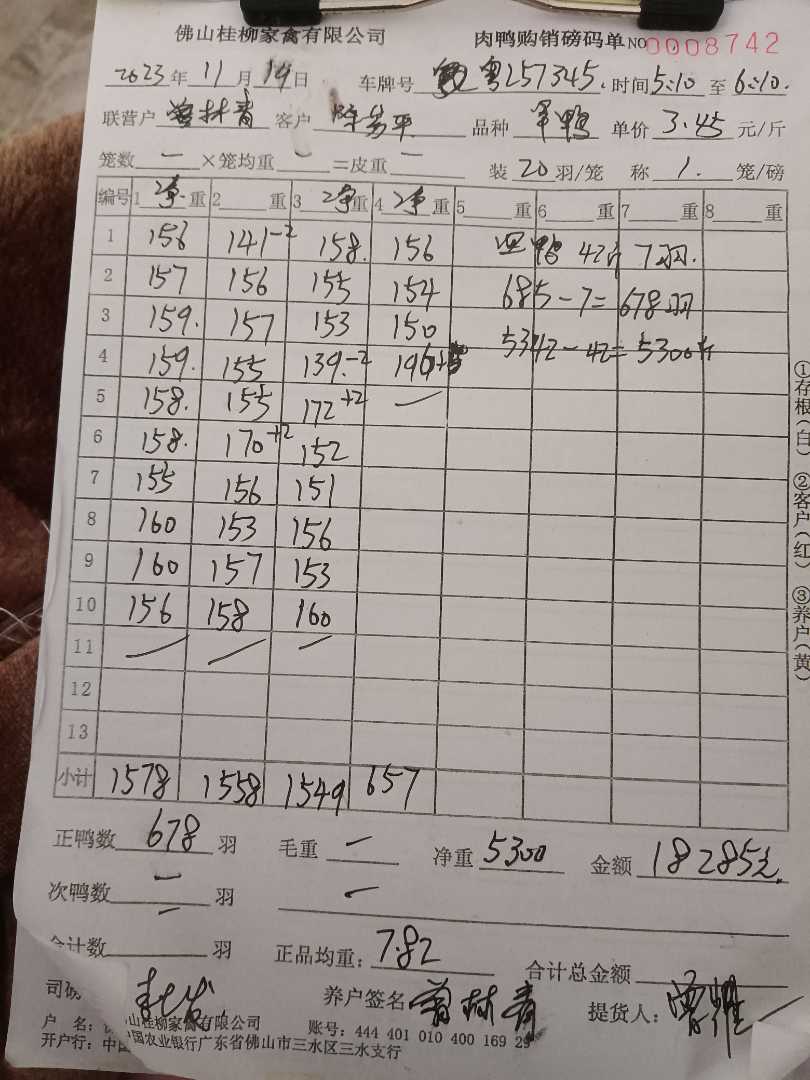 佛山桂柳家禽有限公司 肉鸭购销磅码单 NO 0008742
2023年11月19日 车牌号 粤257345. 时间5:10至6:10.
联营户 曾林青 客户 平 品种 鸭 单价 3.45 元/斤
笼数 一 ×笼均重 一 =皮重 一 装 20 羽/笼 称 1. 笼/磅
编号 1 净 重 2 重 3 净 重 4 净 重 5 重 6 重 7 重 8 重
1 156 141-2 158. 156 鸭 42斤 7羽.
2 157 156 155 154 685-7=678羽
3 159. 157 153 150 5342-42=5300斤
4 159. 155 139.-2
5 158. 155 172+2 —
6 158. 170+2 152
7 155 156 151
8 160 153 156
9 160 157 153
10 156 158 160
11 — — —
12
13
小计 1578 1558 1549 657
正鸭数 678 羽 毛重 一 净重 5300 金额 18285元.
次鸭数 一 羽 一
合计数 一 羽 正品均重: 7.82 合计总金额
司磅 养户签名 曾林青 提货人:
户 名: 佛山桂柳家禽有限公司 账号: 444 401 010 400 169 29
开户行: 中国农业银行广东省佛山市三水区三水支行
①存根(白) ②客户(红) ③养户(黄)